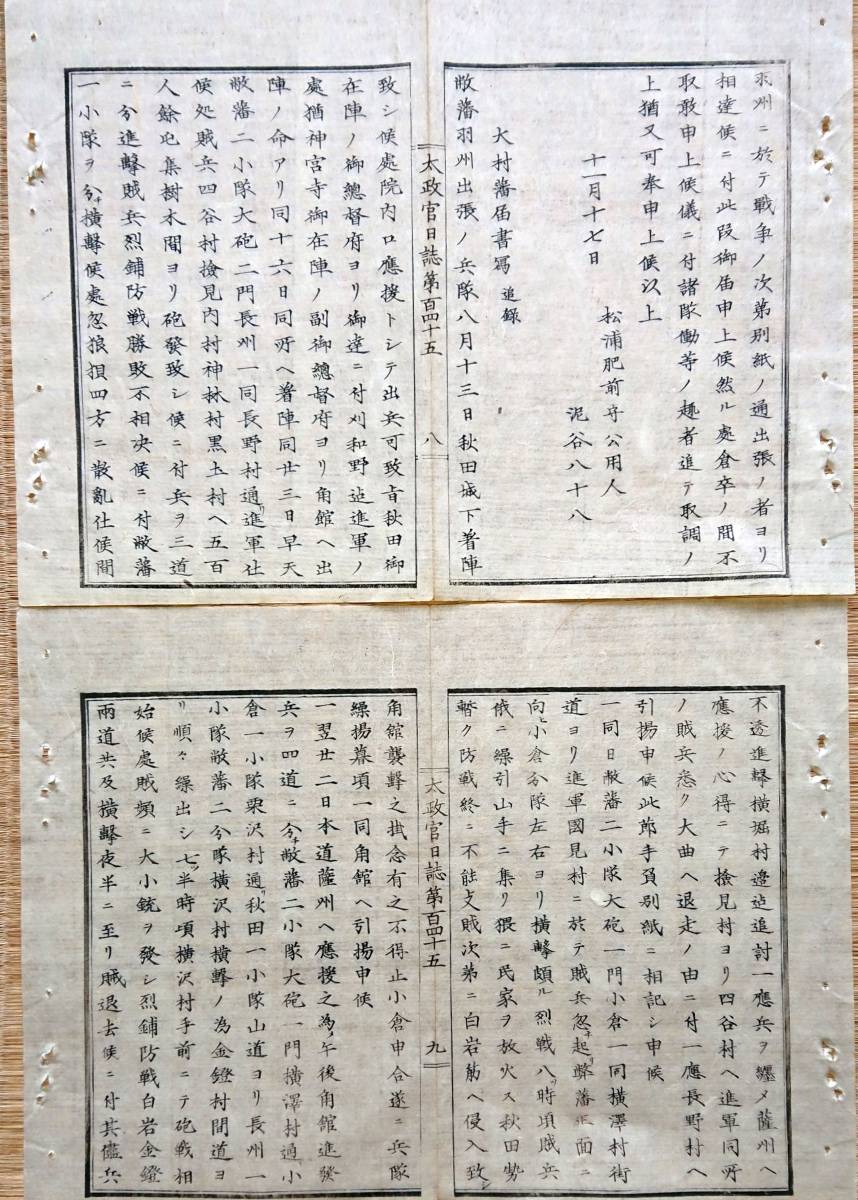 羽州ニ於テ戦争ノ次第別紙ノ通出張ノ者ヨリ
相達候ニ付此段御届申上候然ル處倉卒ノ間不
取敢申上候儀ニ付諸隊働等ノ趣者追テ取調ノ
上猶又可奉申上候以上
十一月十七日
松浦肥前守公用人
泥谷八十八
大村藩届書寫 追録
敝藩羽州出張ノ兵隊八月十三日秋田城下著陣
太政官日誌第百四十五
八
致シ候處院内口應援トシテ出兵可致旨秋田御
在陣ノ御總督府ヨリ御達ニ付刈和野迠進軍ノ
處猶神宮寺御在陣ノ副御總督府ヨリ角館ヘ出
陣ノ命アリ同十六日同所ヘ著陣同廿三日早天
敝藩二小隊大砲二門長州一同長野村通リ進軍仕
候処賊兵四谷村撿見内村神林村黒土村ヘ五百
人餘屯集樹木間ヨリ砲發致シ候ニ付兵ヲ三道
ニ分進撃賊兵烈鋪防戦勝敗不相决候ニ付敝藩
一小隊ヲ分チ横撃候處忽狼狽四方ニ散亂仕候間
不透進撃横堀村邉迠追討一應兵ヲ纒メ薩州ヘ
應援ノ心得ニテ撿見村ヨリ四谷村ヘ進軍同所
ノ賊兵悉ク大曲ヘ退走ノ由ニ付一應長野村ヘ
引揚申候此節手負別紙ニ相記シ申候
一同日敝藩二小隊大砲一門小倉一同横澤村街
道ヨリ進軍國見村ニ於テ賊兵忽チ起リ弊藩正面ニ
向ヒ小倉分隊左右ヨリ横撃頗ル烈戦八ツ時頃賊兵
俄ニ繰引山手ニ集リ猥ニ民家ヲ放火ス秋田勢
暫ク防戦終ニ不能支賊次第ニ白岩筋ヘ侵入致シ
太政官日誌第百四十五
九
角館襲撃之掛念有之不得止小倉申合遂ニ兵隊
繰揚幕頃一同角館ヘ引揚申候
一翌廿二日本道薩州ヘ應援之為メ午後角館進發
兵ヲ四道ニ分チ敝藩二小隊大砲一門横澤村通リ小
倉一小隊栗沢村通リ秋田一小隊山道ヨリ長州一
小隊敝藩二分隊横沢村横撃ノ為金鐙村間道ヨ
リ順々繰出シ七ツ半時頃横沢村手前ニテ砲戦相
始候處賊頻ニ大小銃ヲ發シ烈鋪防戦白岩金鐙
兩道共及横撃夜半ニ至リ賊退去候ニ付其儘兵